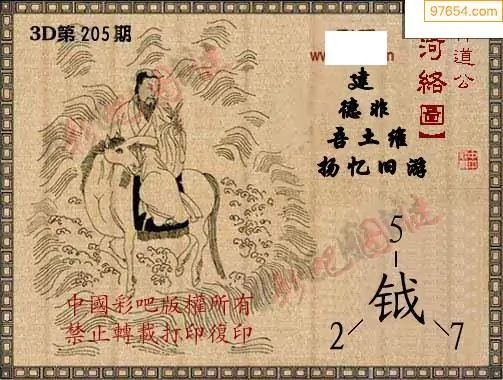 97654.com
3D第205期
www.
道公
河絡圖】
建
德非
吾土维
扬忆旧游
5
钺
2 7
中國彩吧版權所有
禁止轉載打印復印